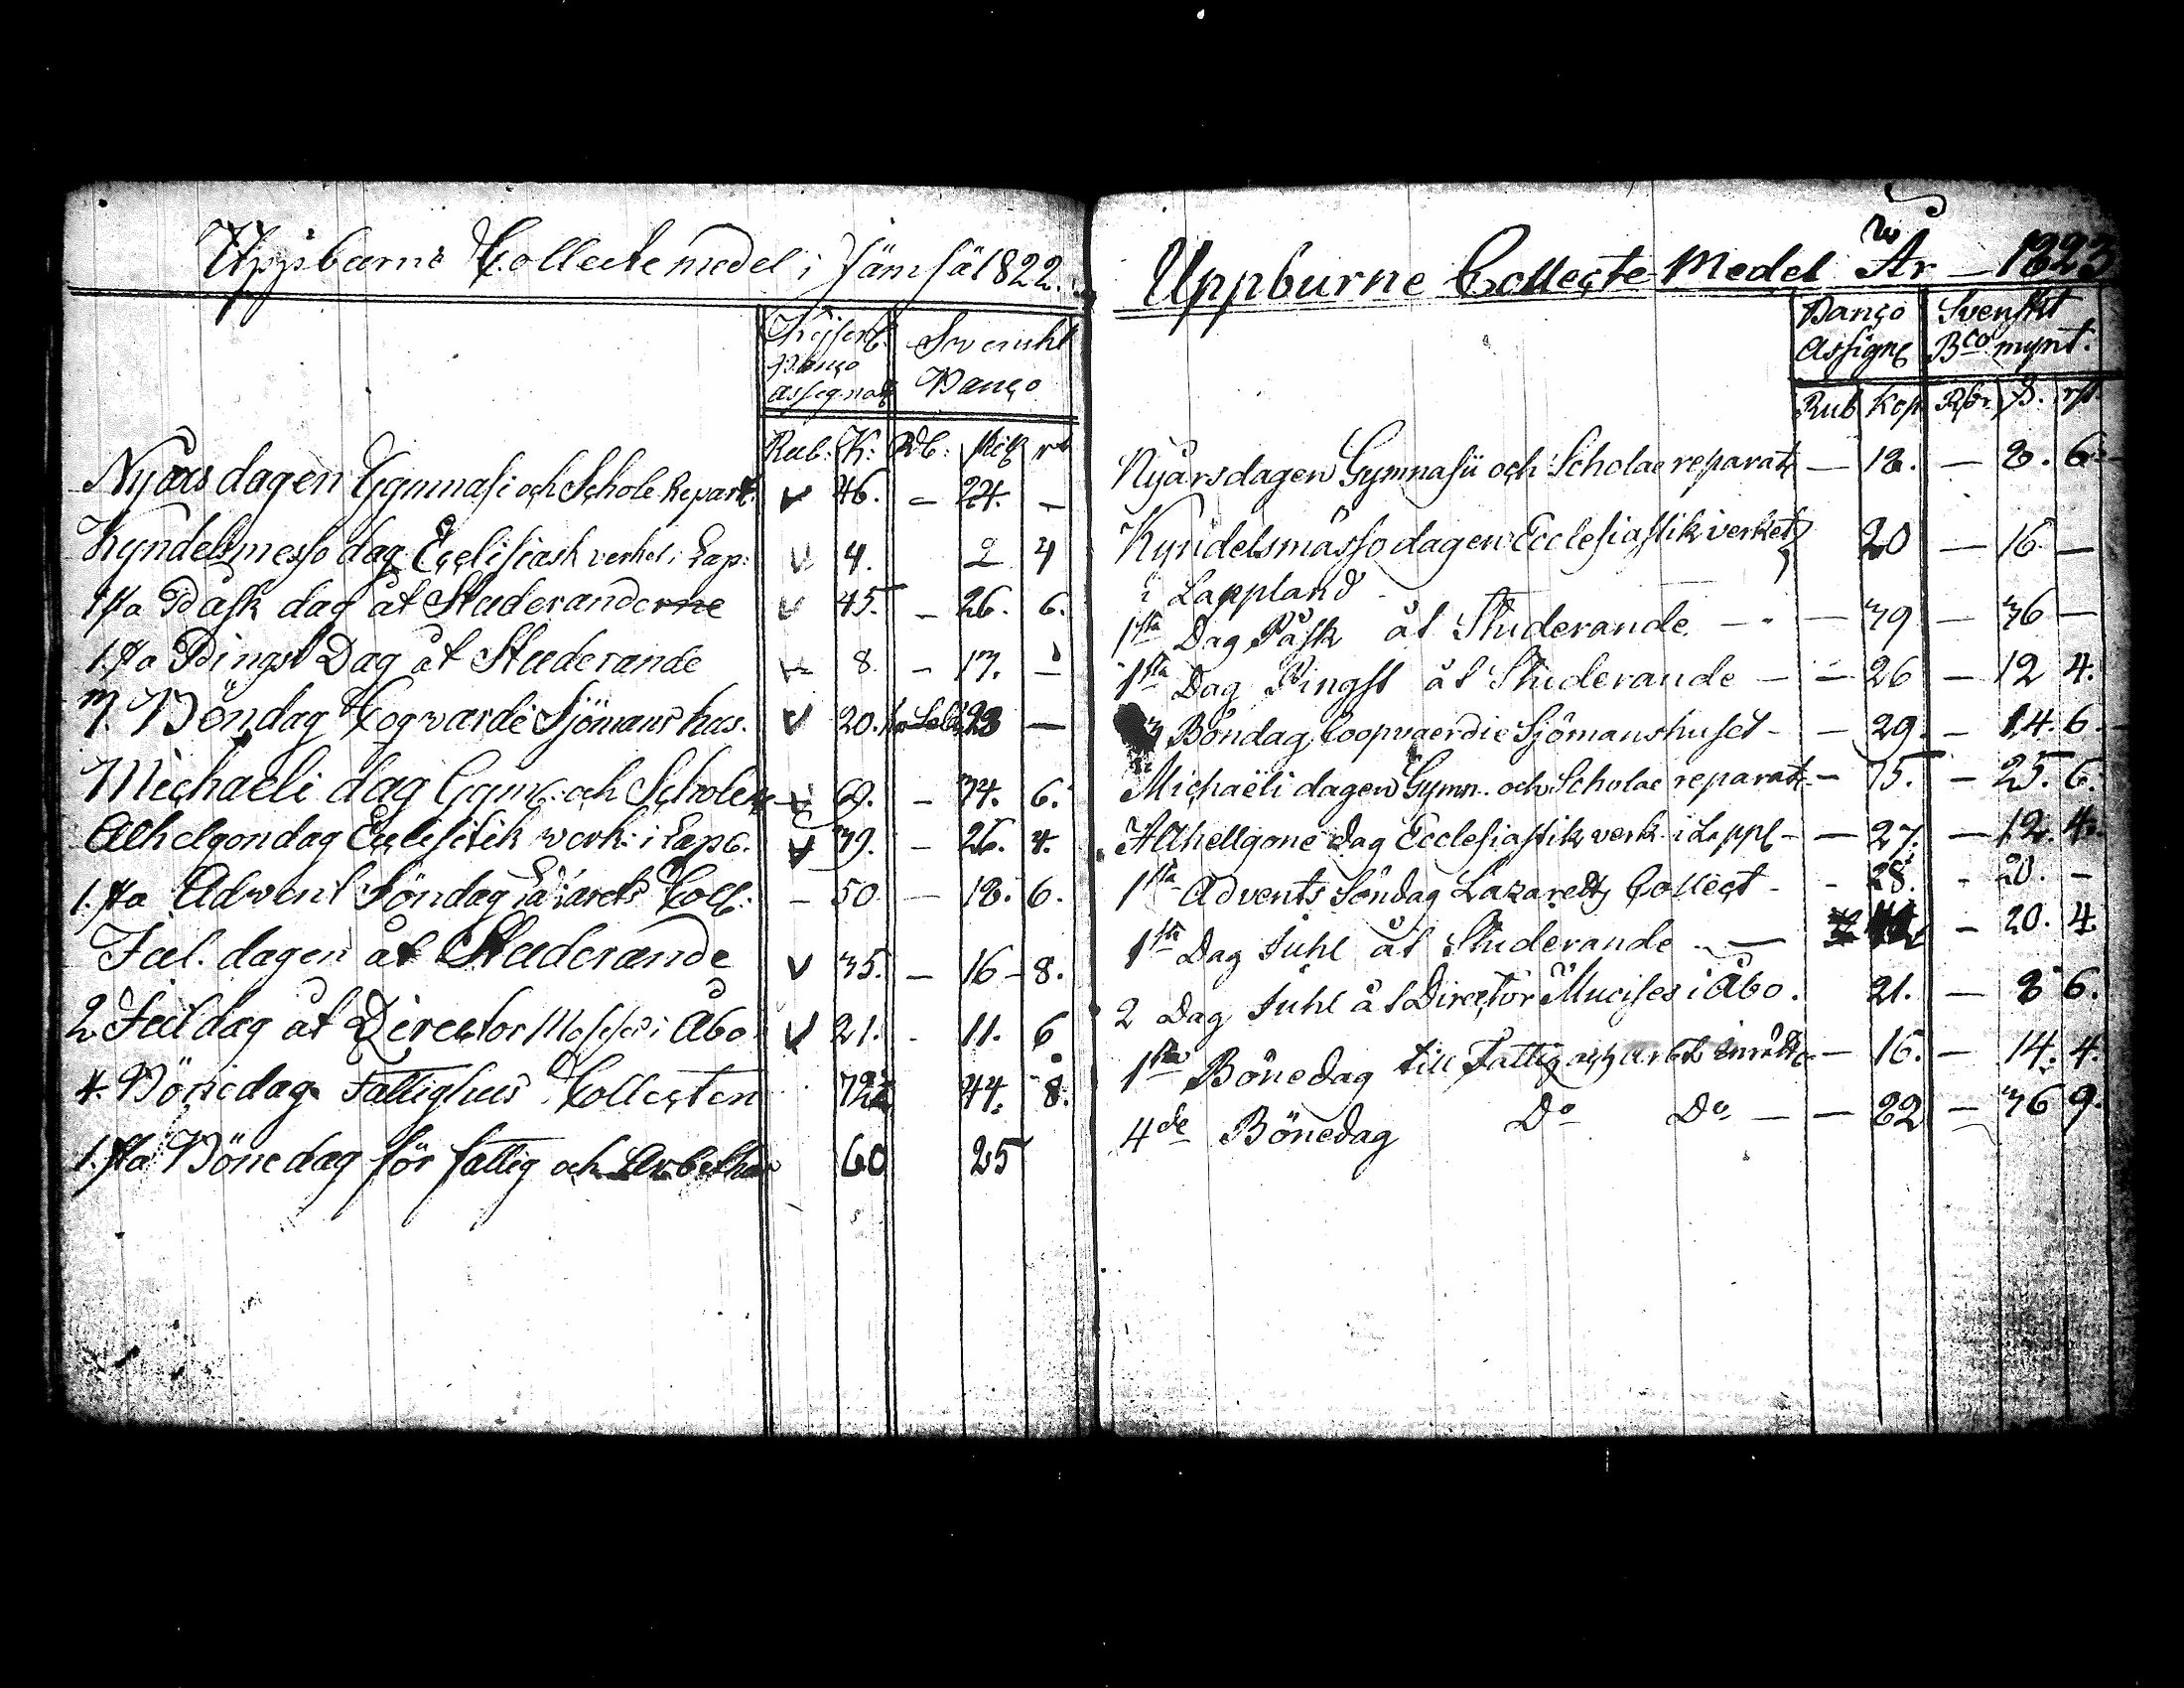 Uppburne Collecte medel i Jämsä 1822.
Kejserl. Swenskt
Banço Banço
assignat
Rub. K. RD. skil rt
Nyårs dagen Gymnasi och Schole Repart. 46. – 24. –
Kyndelsmesso dag Ecclisiask verket i Lap: 4. 2 4
1sta Påsk dag åt Studeranderne 45. – 26. 6.
1.sta Pingst Dag åt Studerande 8 – 17. –
3. Böndag Cogvardi Sjömans hus. 20. 28 –
Michaeli dag Gymn. och Scholen 69. – 34. 6.
Alhelgondag Ecclisitik werk: i Lap. 39. – 26. 4.
1.sta Advent Söndag Lazarets Coll: – 50 – 18. 6.
Juel. dagen åt Studerande 35. – 16 – 8.
2 Juldag åt Director i Åbo 21. – 11. 6
4. Bönedag Fattighus Collecten 72 44. 8.
1.sta Bönedag för fattig och Arbetshus 60 25
Uppburne Collecte Medel År – 1823
Banço Svenskt
Assign Bco mynt.
Rub Kop Rdr. ß. rst
Nyårsdagen Gymnasii och Scholae reparat – 18. – 8. 6.
Kyndelsmässodagen Ecclesiastikverket 20 – 16 –
i Lappland
1sta Dag Påsk åt Studerande – 39 – 36 –
1sta Dag Pingst åt Studerande – – 26 – 12 4.
3 Böndag Coopvaerdie Sjömanshuset – – 29. – 14. 6.
Michaëli dagen Gymn. och Scholae reparat – 75. – 25. 6.
Althellgone dag Ecclesiastik verk i Lappl – – 27. – 12. 4.
1sta Advents Söndag Lazaretts Collect – – 28. – 20. –
1sta Dag Juhl åt Studerande – – 20. 4.
2 Dag Juhl åt Director Mucises i Åbo. 21. – 8 6.
1sta Bönedag till Fattig och arbets inrätt – 16. – 14. 4.
4de Bönedag Do Do – – 82 – 36 9.